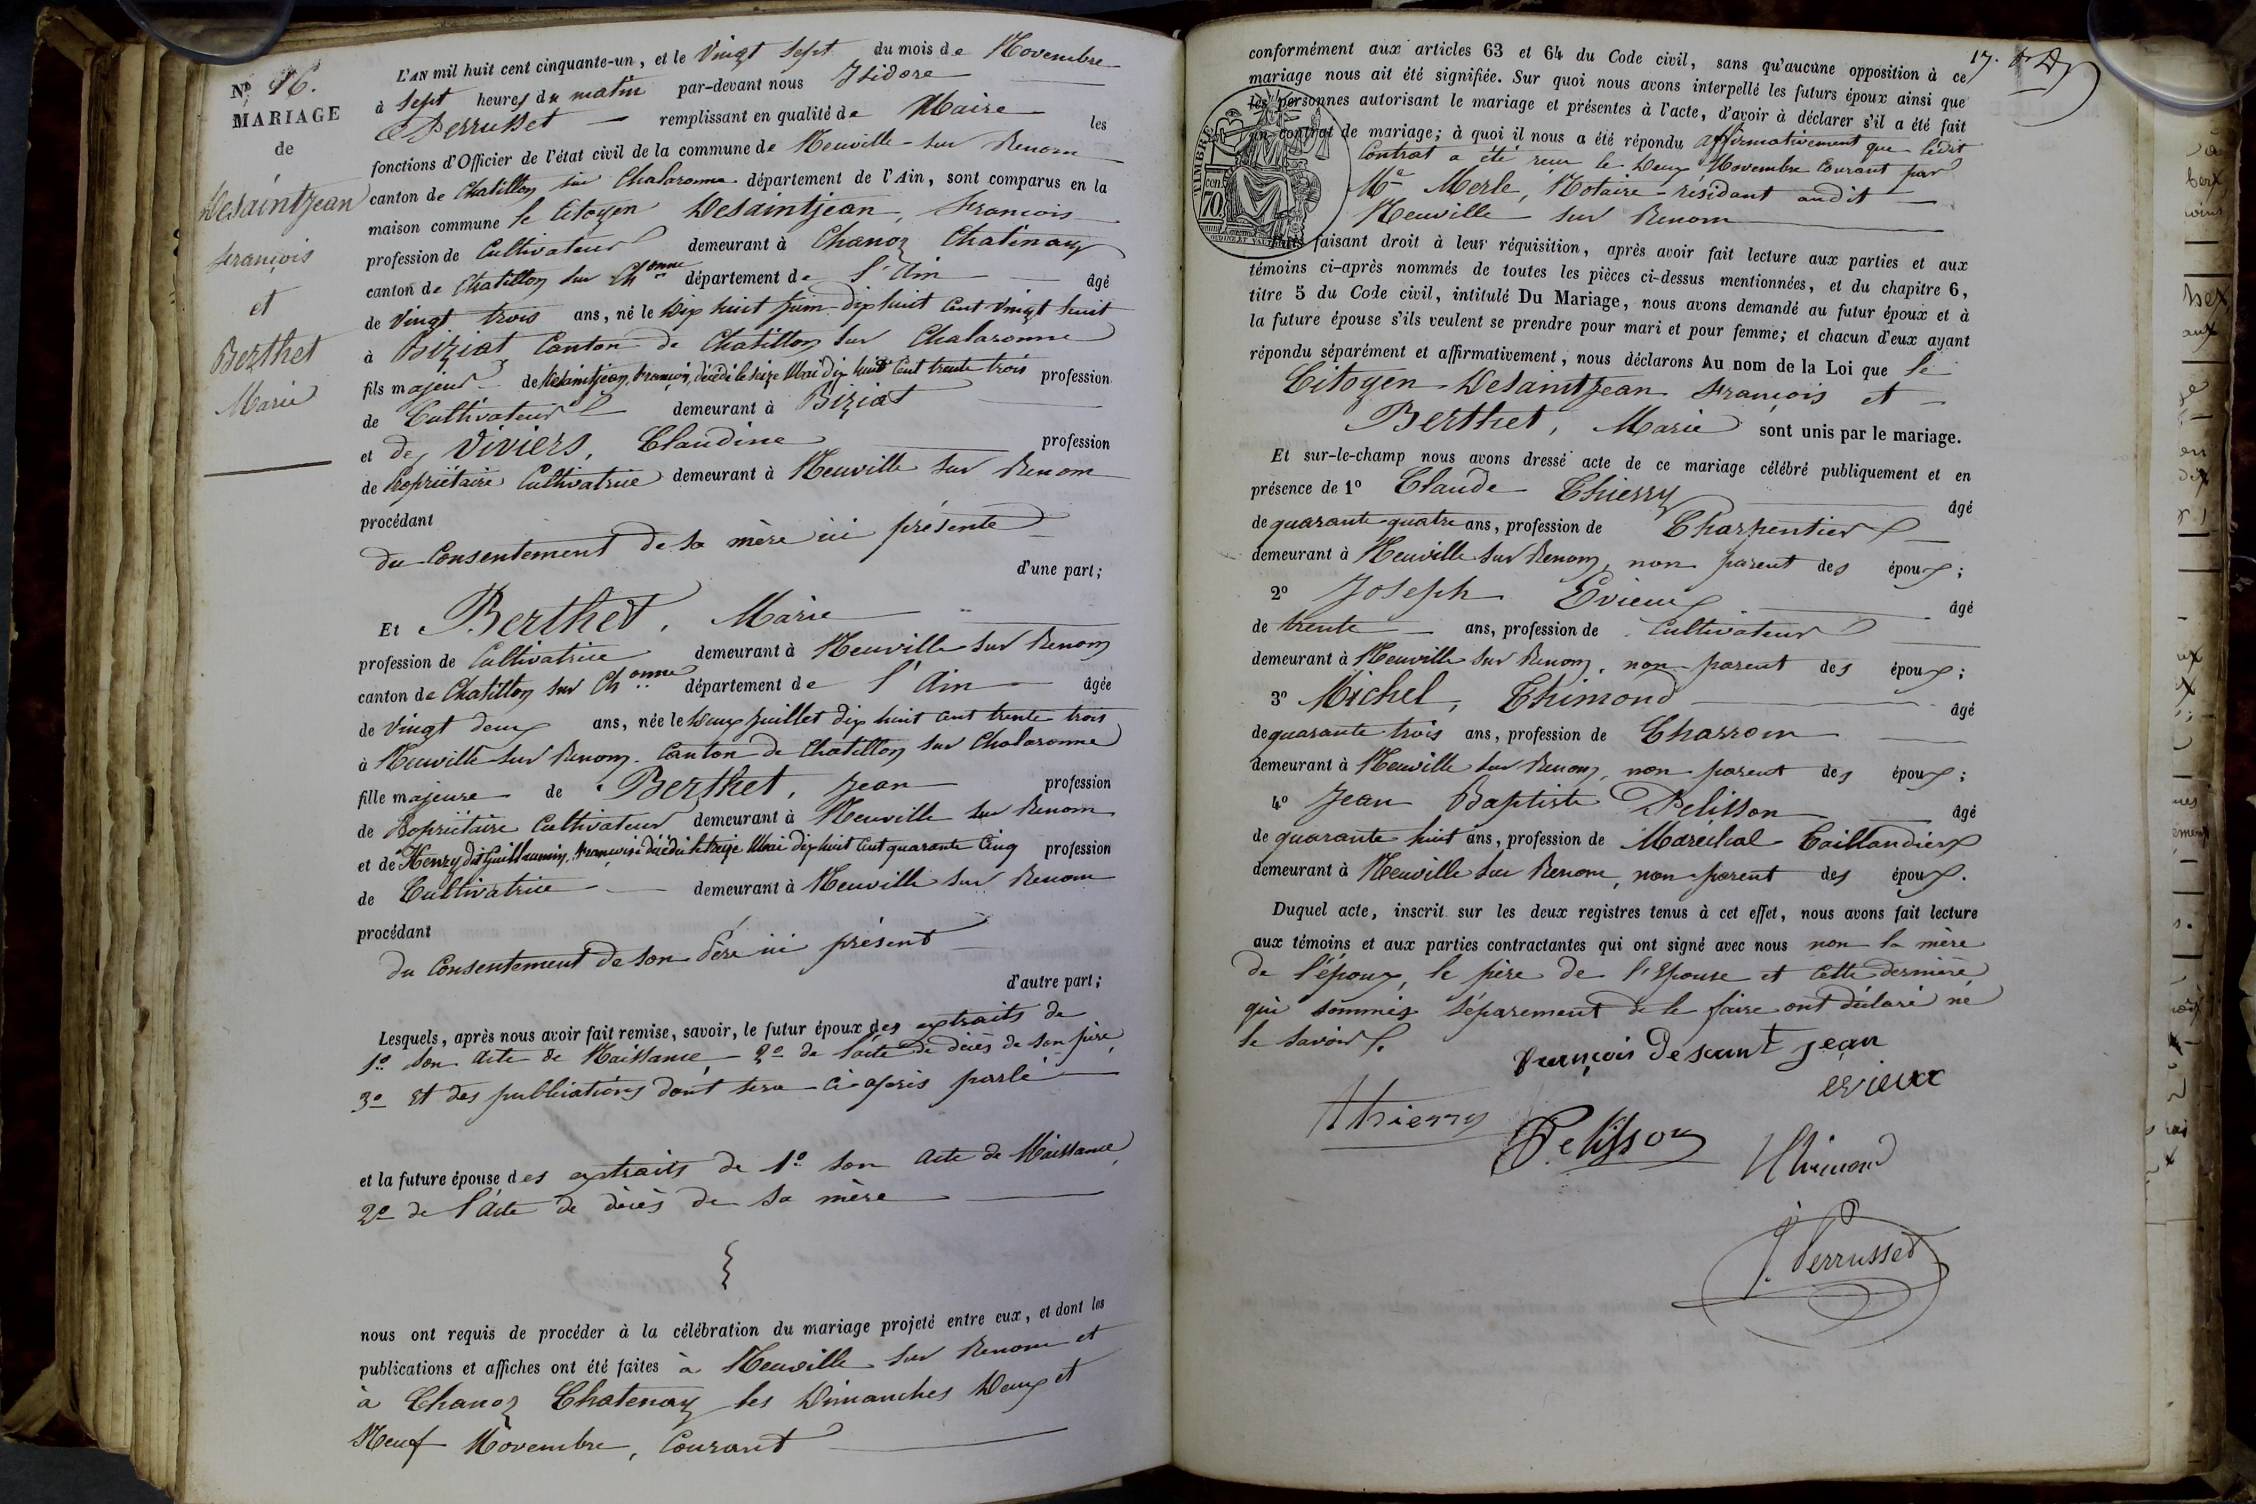 Nº 16.
MARIAGE
de
Desaintjean
François
et
Berthet
Marie
L'AN mil huit cent cinquante-un, et le Vingt Sept du mois de Novembre
à Sept heures du matin par-devant nous Isidore
Perrusset remplissant en qualité de Maire les
fonctions d'Officier de l'état civil de la commune de Neuville-sur Renom
canton de Chatillon sur Chalaronne département de l'Ain, sont comparus en la
maison commune le Citoyen Desaintjean, François
profession de Cultivateur demeurant à Chanoz Chatenay
canton de Chatillon sur Chonne département de l'Ain âgé
de Vingt trois ans, né le Dix huit Juin dix huit Cent Vingt huit
à Biziat Canton de Chatillon sur Chalaronne
fils majeur de Desaintjean, François, décédé le seize Mai dix huit Cent trente trois profession
de Cultivateur demeurant à Biziat
et de Viviers, Claudine profession
de Propriétaire Cultivatrice demeurant à Neuville sur Renom
procédant
du Consentement de sa mère ici présente
d'une part;
Et Berthet, Marie
profession de Cultivatrice demeurant à Neuville sur Renom
canton de Chatillon sur Chonne département de l'Ain âgée
de Vingt deux ans, née le Deux Juillet dix huit cent trente trois
à Neuville sur Renom Canton de Chatillon sur Chalaronne
fille majeure de Berthet, Jean profession
de Propriétaire Cultivateur demeurant à Neuville sur Renom
et de Henry dit Guillaumin, Françoise décédée le treize Mai dix huit Cent quarante Cinq profession
de Cultivatrice demeurant à Neuville sur Renom
procédant
du Consentement de son Père ici présent
d'autre part;
Lesquels, après nous avoir fait remise, savoir, le futur époux des extraits de
1º son acte de Naissance, 2º de l'acte de décès de son père,
3º Et des publications dont sera ci après parlé
et la future épouse des extraits de 1º son Acte de Naissance,
2º de l'Acte de décès de sa mère
nous ont requis de procéder à la célébration du mariage projeté entre eux, et dont les
publications et affiches ont été faites à Neuville sur Renom et
à Chanoz Chatenay les Dimanches Deux et
Neuf Novembre, Courant
17.
conformément aux articles 63 et 64 du Code civil, sans qu'aucune opposition à ce
mariage nous ait été signifiée. Sur quoi nous avons interpellé les futurs époux ainsi que
les personnes autorisant le mariage et présentes à l'acte, d'avoir à déclarer s'il a été fait
un contrat de mariage; à quoi il nous a été répondu affirmativement que ledit
Contrat a été reçu le Deux Novembre Courant par
Me Merle, Notaire résidant audit
Neuville sur Renom
TIMBRE
70
faisant droit à leur réquisition, après avoir fait lecture aux parties et aux
témoins ci-après nommés de toutes les pièces ci-dessus mentionnées, et du chapitre 6,
titre 5 du Code civil, intitulé Du Mariage, nous avons demandé au futur époux et à
la future épouse s'ils veulent se prendre pour mari et pour femme; et chacun d'eux ayant
répondu séparément et affirmativement, nous déclarons Au nom de la Loi que le
Citoyen Desaintjean François et
Berthet, Marie sont unis par le mariage.
Et sur-le-champ nous avons dressé acte de ce mariage célébré publiquement et en
présence de 1º Claude Thierry âgé
de quarante quatre ans, profession de Charpentier
demeurant à Neuville sur Renom, non parent des époux;
2º Joseph Evieux âgé
de trente ans, profession de Cultivateur
demeurant à Neuville sur Renom, non parent des époux;
3º Michel, Thimond âgé
de quarante trois ans, profession de Charron
demeurant à Neuville sur Renom, non parent des époux;
4º Jean Baptiste Pelisson âgé
de quarante huit ans, profession de Maréchal Taillandier
demeurant à Neuville sur Renom, non parent des époux.
Duquel acte, inscrit sur les deux registres tenus à cet effet, nous avons fait lecture
aux témoins et aux parties contractantes qui ont signé avec nous non la mère
de l'époux, le père de l'Epouse et cette dernière
qui sommés séparement de le faire ont déclaré ne
le savoir.
françois Desaint jean
evieux
thierry
Pelisson
Thimond
J. Perrusset